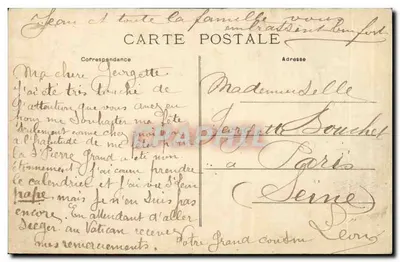 Jean et toute la famille vous
embrassent bien fort
CARTE POSTALE
Correspondance
Adresse
Ma chère Georgette
J'ai été très touché de
l'attention que vous avez eu
nous me souhaiter ma fête
seulement comme chez nous
l'habitude de me
la St Pierre grand a été mon
étonnement j'ai couru prendre
ce calendrier et j'ai vu St Léon
pape, mais je n'en suis pas
encore. En attendant d'aller
sieger au Vatican recevez
mes remerciements.
Votre grand cousin
Léon
Mademoiselle
Bouchet
à
Paris
(Seine)